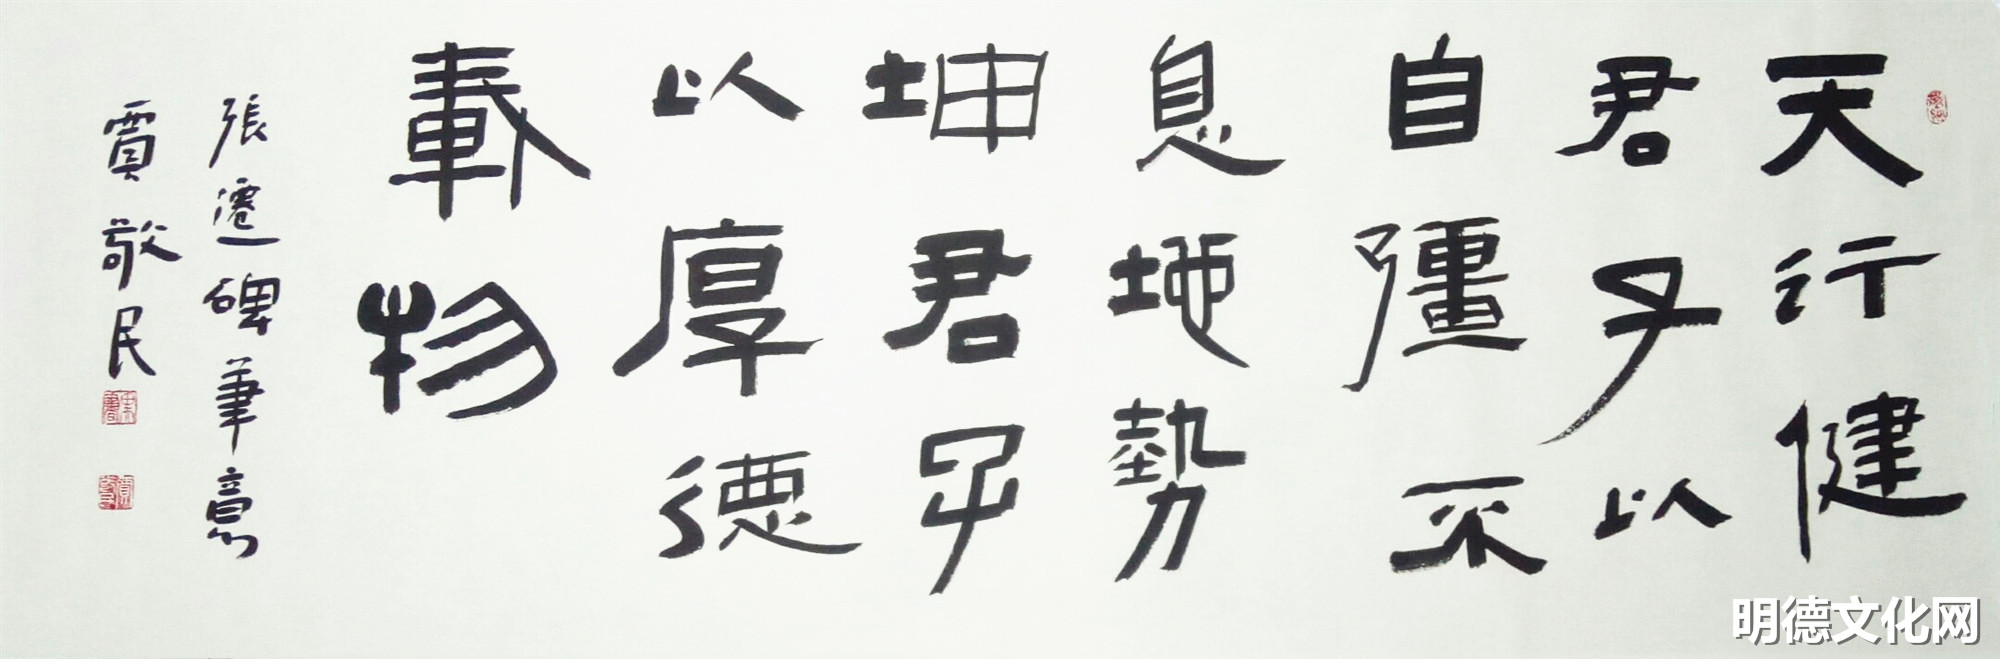 天行健
君子以
自彊不
息地勢
坤君子
以厚德
載物
張遷碑筆意
賈敬民
明德文化网